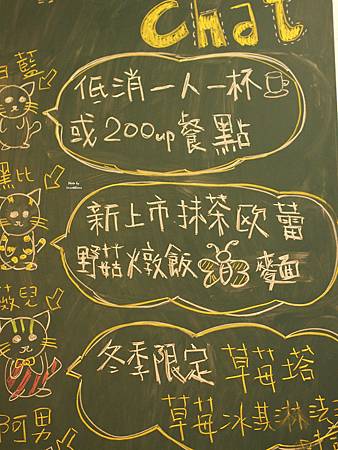 chat
藍
低消一人一杯
或200up餐點
黑比
新上市抹茶歐蕾
野菇燉飯 麥面
薇兒
冬季限定 草莓塔
草莓冰淇淋法
阿男